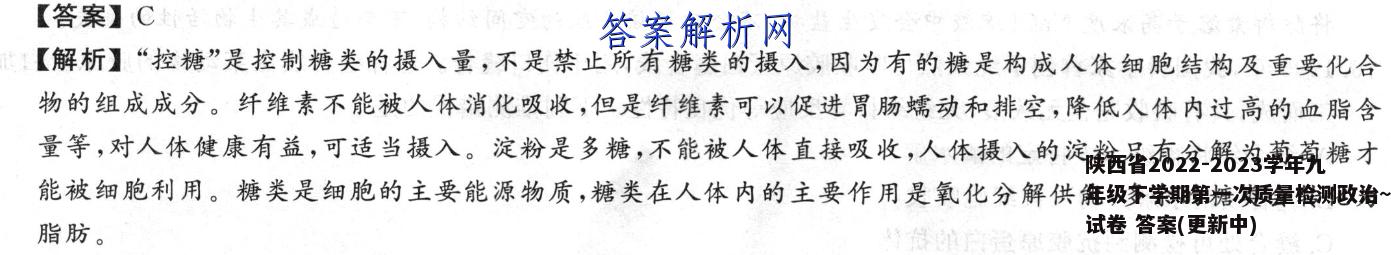 【答案】C
答案解析网
【解析】“控糖”是控制糖类的摄入量,不是禁止所有糖类的摄入,因为有的糖是构成人体细胞结构及重要化合
物的组成成分。纤维素不能被人体消化吸收,但是纤维素可以促进胃肠蠕动和排空,降低人体内过高的血脂含
量等,对人体健康有益,可适当摄入。淀粉是多糖,不能被人体直接吸收,人体摄入的淀粉只有分解为葡萄糖才
能被细胞利用。糖类是细胞的主要能源物质,糖类在人体内的主要作用是氧化分解供
脂肪。
陕西省2022-2023学年九
年级下学期第一次质量检测政治~
试卷 答案(更新中)